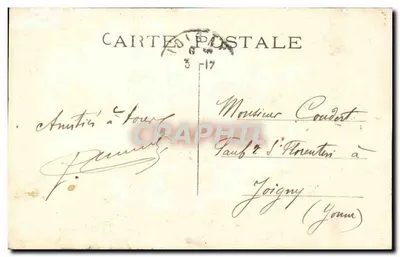 CARTE POSTALE
3 -17
Amitiés à tous
Monsieur Coudert
Faub g St Florentin à
Joigny
(Yonne)